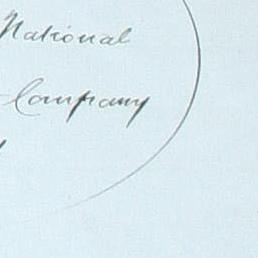 National
Company